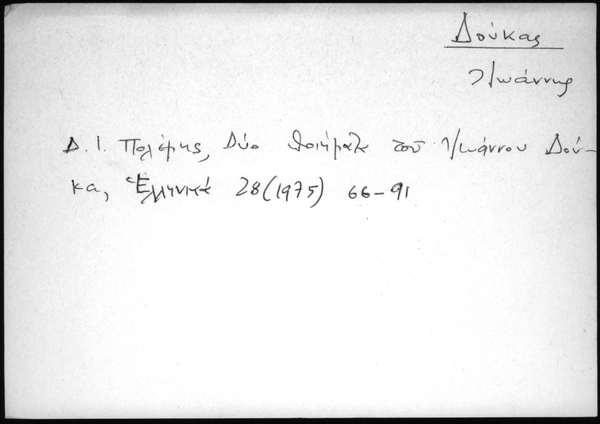 Δούκας
Ἰωάννης
Δ. Ι. Πολέμης, Δύο ποιήματα τοῦ Ἰωάννου Δού-
κα, Ἑλληνικά 28 (1975) 66-91